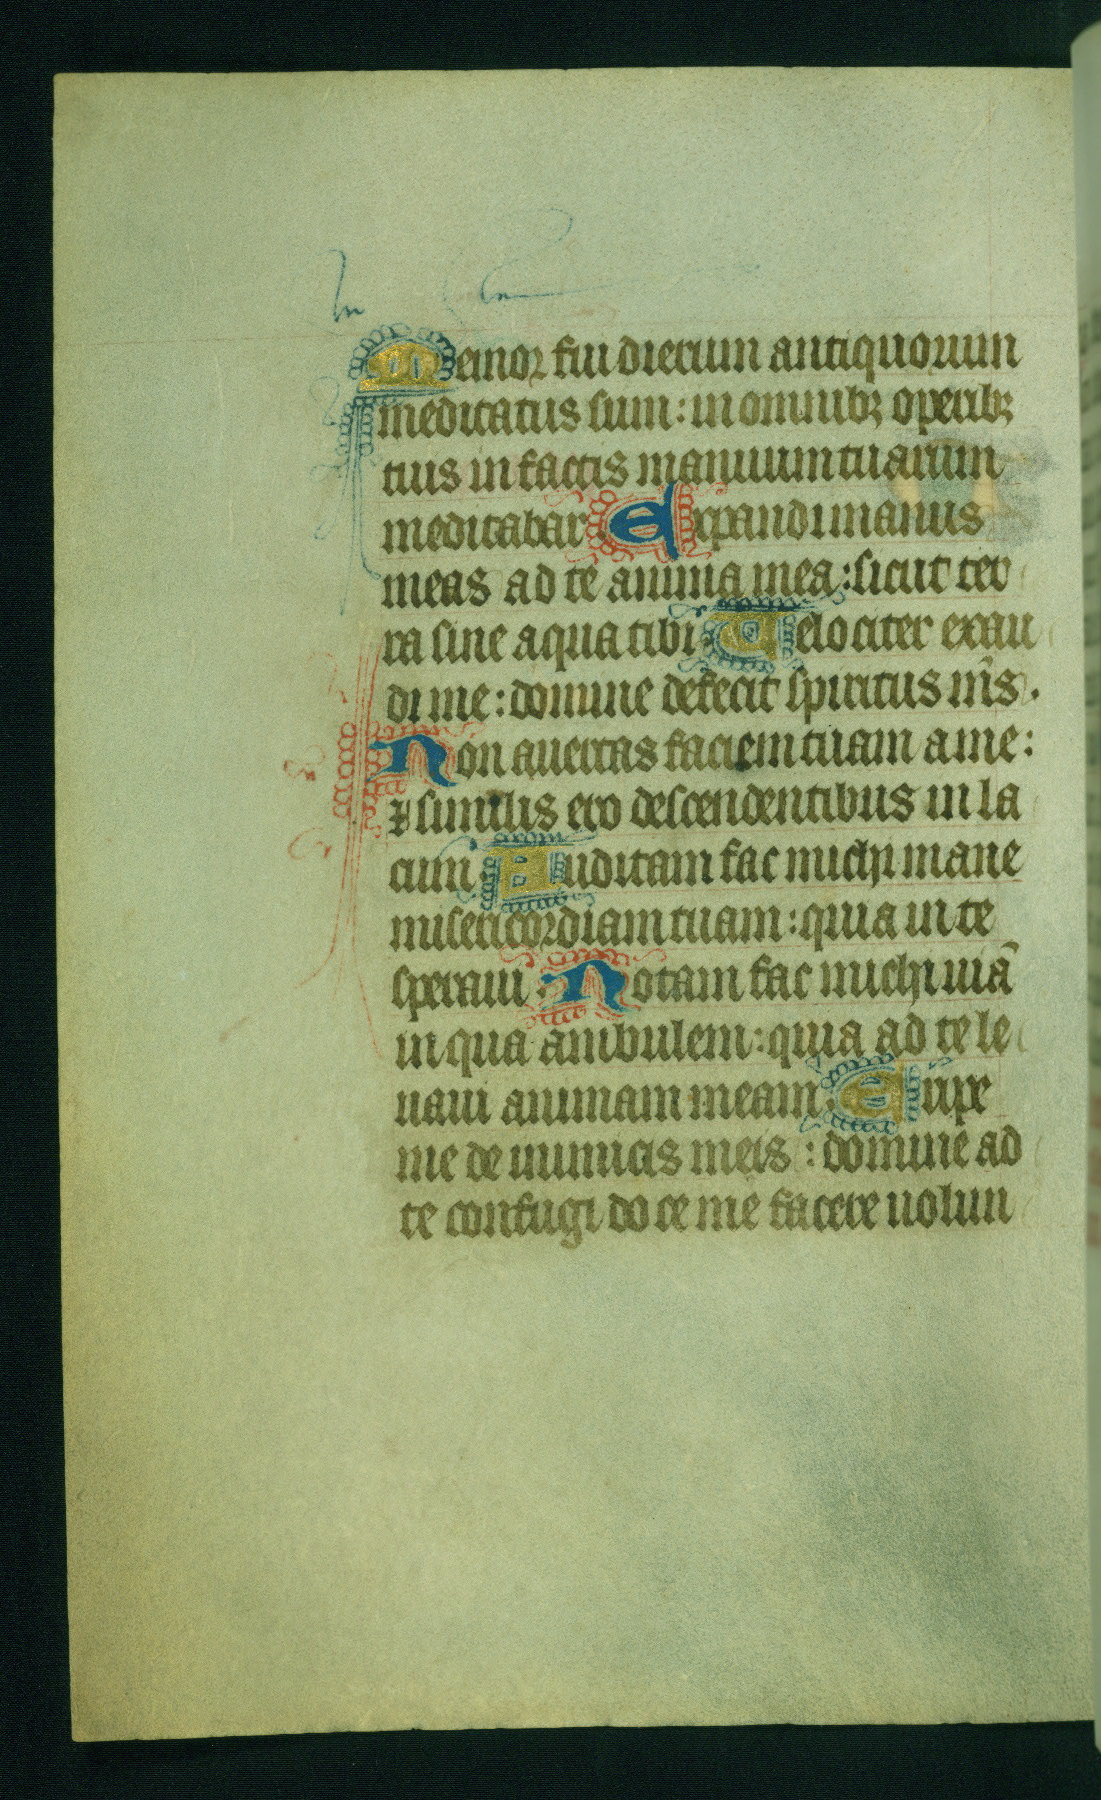 Memor fui dierum antiquorum
meditatus sum: in omnibꝫ operibꝫ
tuis in factis manuum tuarum
meditabar. Expandi manus
meas ad te anima mea: sicut ter
ra sine aqua tibi. Velociter exau
di me: domine defecit spiritus m̄s.
Non auertas faciem tuam a me:
⁊ similis ero descendentibus in la
cum. Auditam fac michi mane
misericordiam tuam: quia in te
speraui. Notam fac michi uiā
in qua ambulem: quia ad te le
uaui animam meam. Eripe
me de inimicis meis: domine ad
te confugi doce me facere uolun